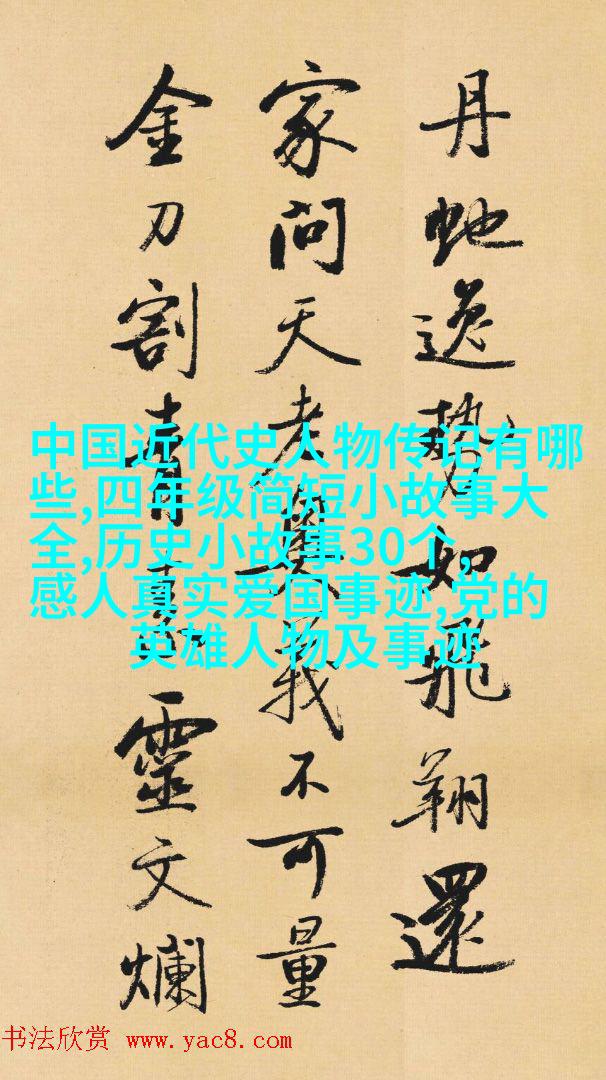 丹虵逸勢如飛翔還
家問天老奧義不可量
金刀割青素靈文爛
中国近代史人物传记有哪
些,四年级简短小故事大
全,历史小故事30个,
感人真实爱国事迹,党的
英雄人物及事迹
书法欣赏 www.yac8.com